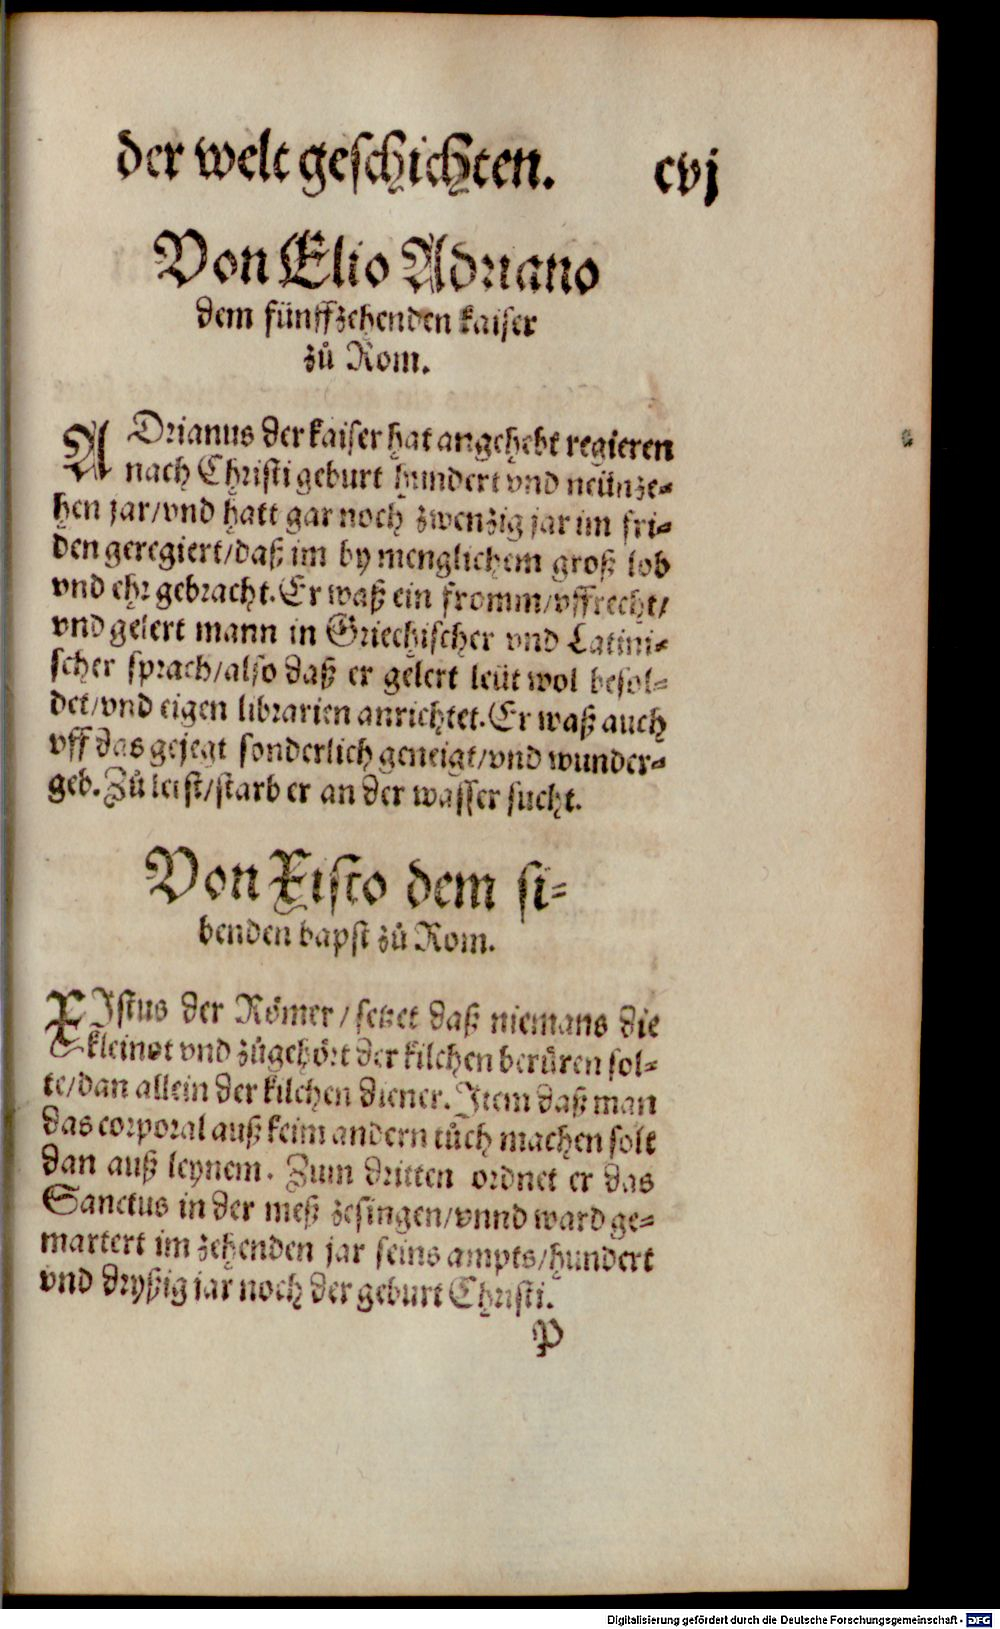 der welt geschichten. cvj
Von Elio Adriano
dem fünffzehenden kaiser
zů Rom.
ADrianus der kaiser hat angehebt regieren
nach Christi geburt hundert vnd neünze⸗
hen jar/vnd hatt gar noch zwenzig jar im fri⸗
den geregiert/daß im by menglichem groß lob
vnd ehr gebracht. Er waß ein fromm/vffrecht/
vnd gelert mann in Griechischer vnd Latini⸗
scher sprach/also daß er gelert leüt wol besol⸗
det/vnd eigen librarien anrichtet. Er waß auch
vff das gejegt sonderlich geneigt/vnd wunder⸗
geb. Zů leist/starb er an der wasser sucht.
Von Xisto dem si⸗
benden bapst zů Rom.
XIstus der Römer/setzet daß niemans die
kleinot vnd zůgehört der kilchen berůren sol⸗
te/dan allein der kilchen diener. Item daß man
das corporal auß keim andern tůch machen solt
dan auß leynem. Zum dritten ordnet er das
Sanctus in der meß zesingen/vnnd ward ge⸗
martert im zehenden jar seins ampts/hundert
vnd dryßig jar noch der geburt Christi.
P
Digitalisierung gefördert durch die Deutsche Forschungsgemeinschaft - DFG